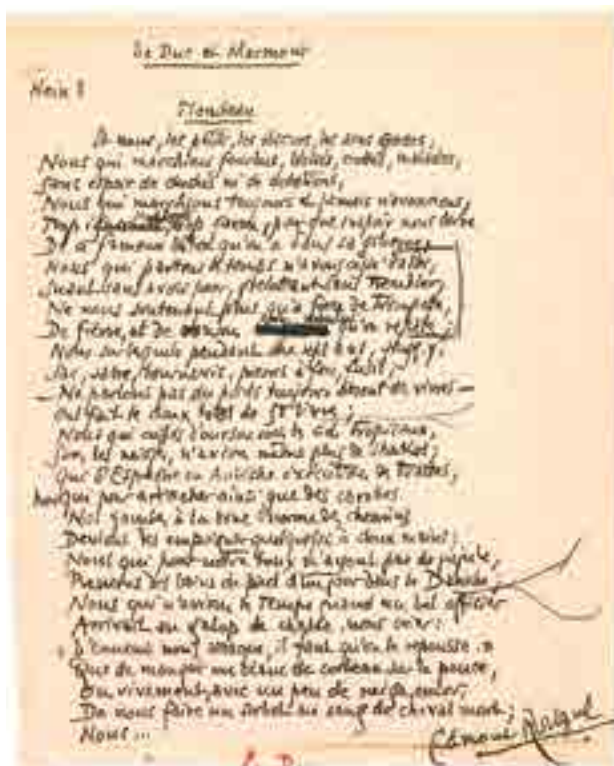 Le Duc et Marmont
Flambeau
Et nous, les petits, les obscurs, les sans grades,
Nous qui marchions fourbus, blessés, crottés, malades,
Sans espoir de duchés ni de dotations,
Nous qui marchions toujours et jamais n'avancions,
Trop trop pour que l'espoir nous berne
De ce fameux bâton qu'on a dans sa giberne;
Nous qui par tous temps n'avons cessé d'aller,
Suant sans avoir peur, grelottant sans trembler,
Ne nous soutenant plus qu'à force de trompette,
De fièvre, et de chansons qu'on répète;
Nous sur lesquels pendant dix sept ans,
Sac, sabre, tournevis, pierres à feu, fusil,
— Ne parlons pas du poids toujours absent des vivres —
Ont fait le doux total de livres;
Nous qui coiffés d'oursons sous les ciels tropicaux,
Sous les neiges, n'avions même plus de shakos;
Qui d'Espagne en Autriche exécutions des trottes,
Nous qui pour arracher ainsi que des carottes
Nos jambes à la boue énorme des chemins
Devions les empoigner quelquefois à deux mains;
Nous qui pour notre toux n'ayant pas de jujube,
Prenions des bains de pied d'un jour dans le Danube;
Nous qui n'avions le temps quand un bel officier
Arrivait au galop de chasse, nous crier:
« L'ennemi nous attaque, il faut qu'on le repousse »
Que de manger un blanc de corbeau sur le pouce,
Ou vivement, avec un peu de neige, encor,
De nous faire un sorbet au sang de cheval mort;
Nous...